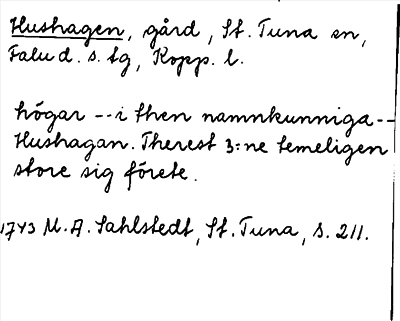 Hushagen, gård, St. Tuna sn,
Falu d. s. tg, Kopp. l.
högar -- i then namnkunniga --
Hushagan. Therest 3:ne temeligen
store sig förete.
1743 M. A. Sahlstedt, St. Tuna, s. 211.